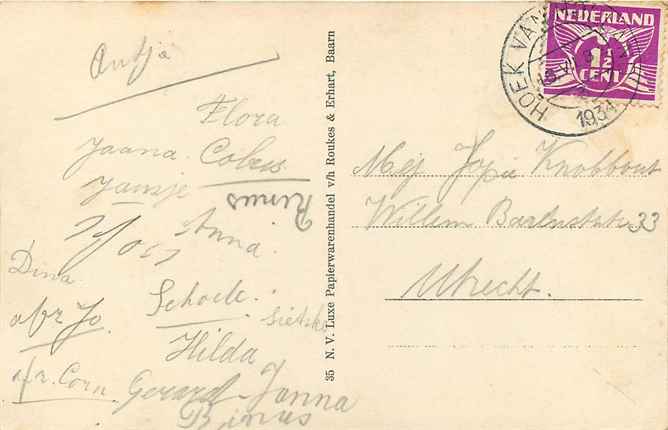 Antje
Flora
Jaana. Cobus
Jansje
Rinus
Anna.
Dina
Schoele.
afz Jo
Sietske
Hilda
afz. Corn. Gerard - Janna
Binus
35 N. V. Luxe Papierwarenhandel v/h Roukes & Erhart, Baarn
NEDERLAND
1½
CENT
HOEK VAN
1934
Mej. Jopie Knobbout
Willem Barentzstr. 33
Utrecht.